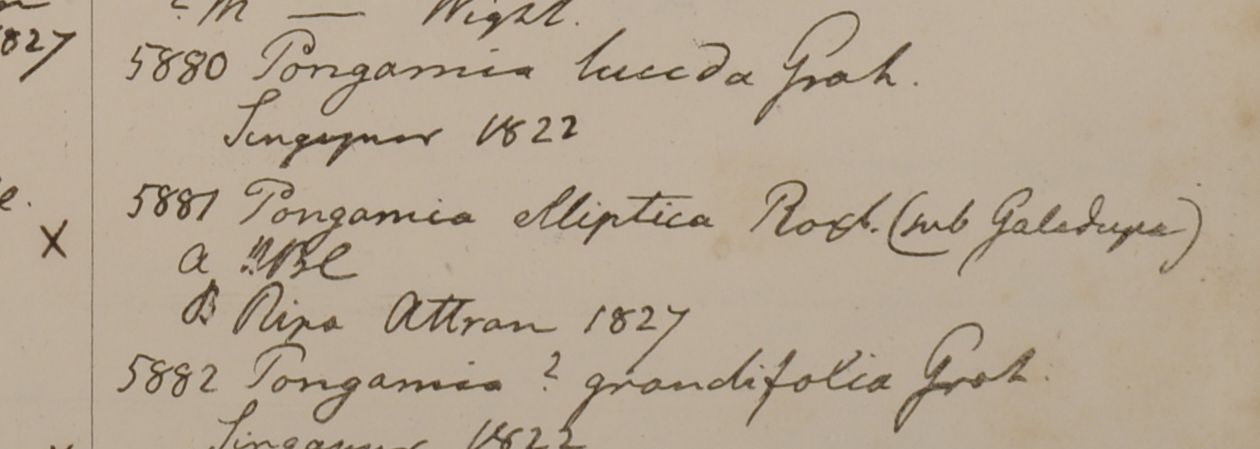 Wight.
827
5880 Pongamia lucida Grah.
Singapur 1822
e.
5881 Pongamia elliptica Roxb. (sub Galedupa)
X
a HBC
B Ripa Attran 1827
5882 Pongamia ? grandifolia Grah.
Singapur 1822